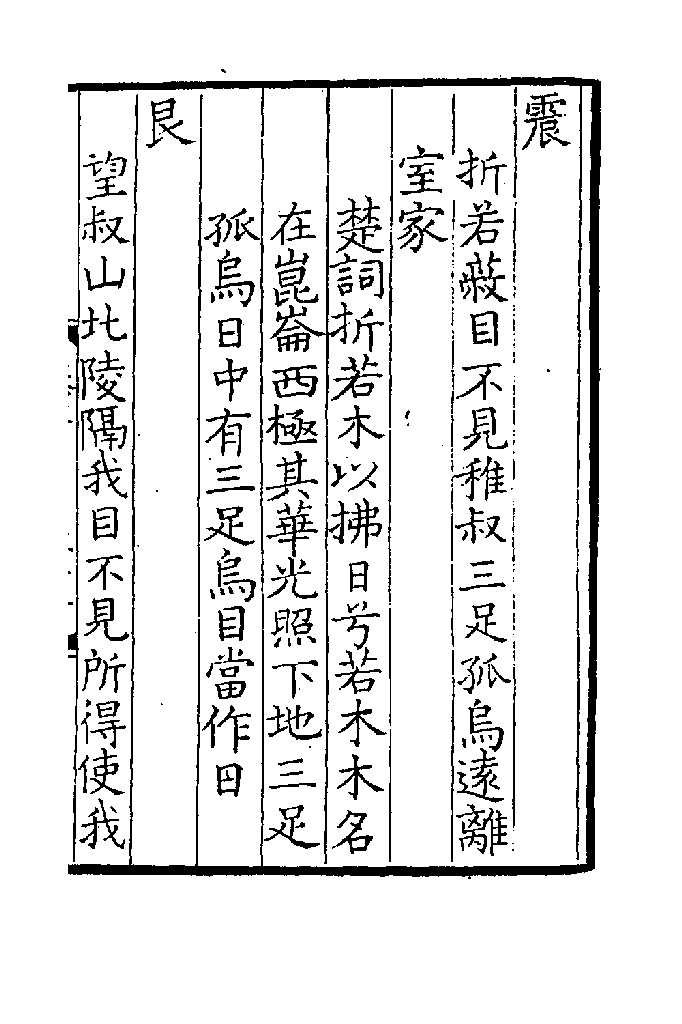 震
折若蔽目不見稚叔三足孤烏遠離
室家
楚詞折若木以拂日兮若木木名
在崑崙西極其華光照下地三足
孤烏日中有三足烏目當作日
艮
望叔山北陵隔我目不見所得使我